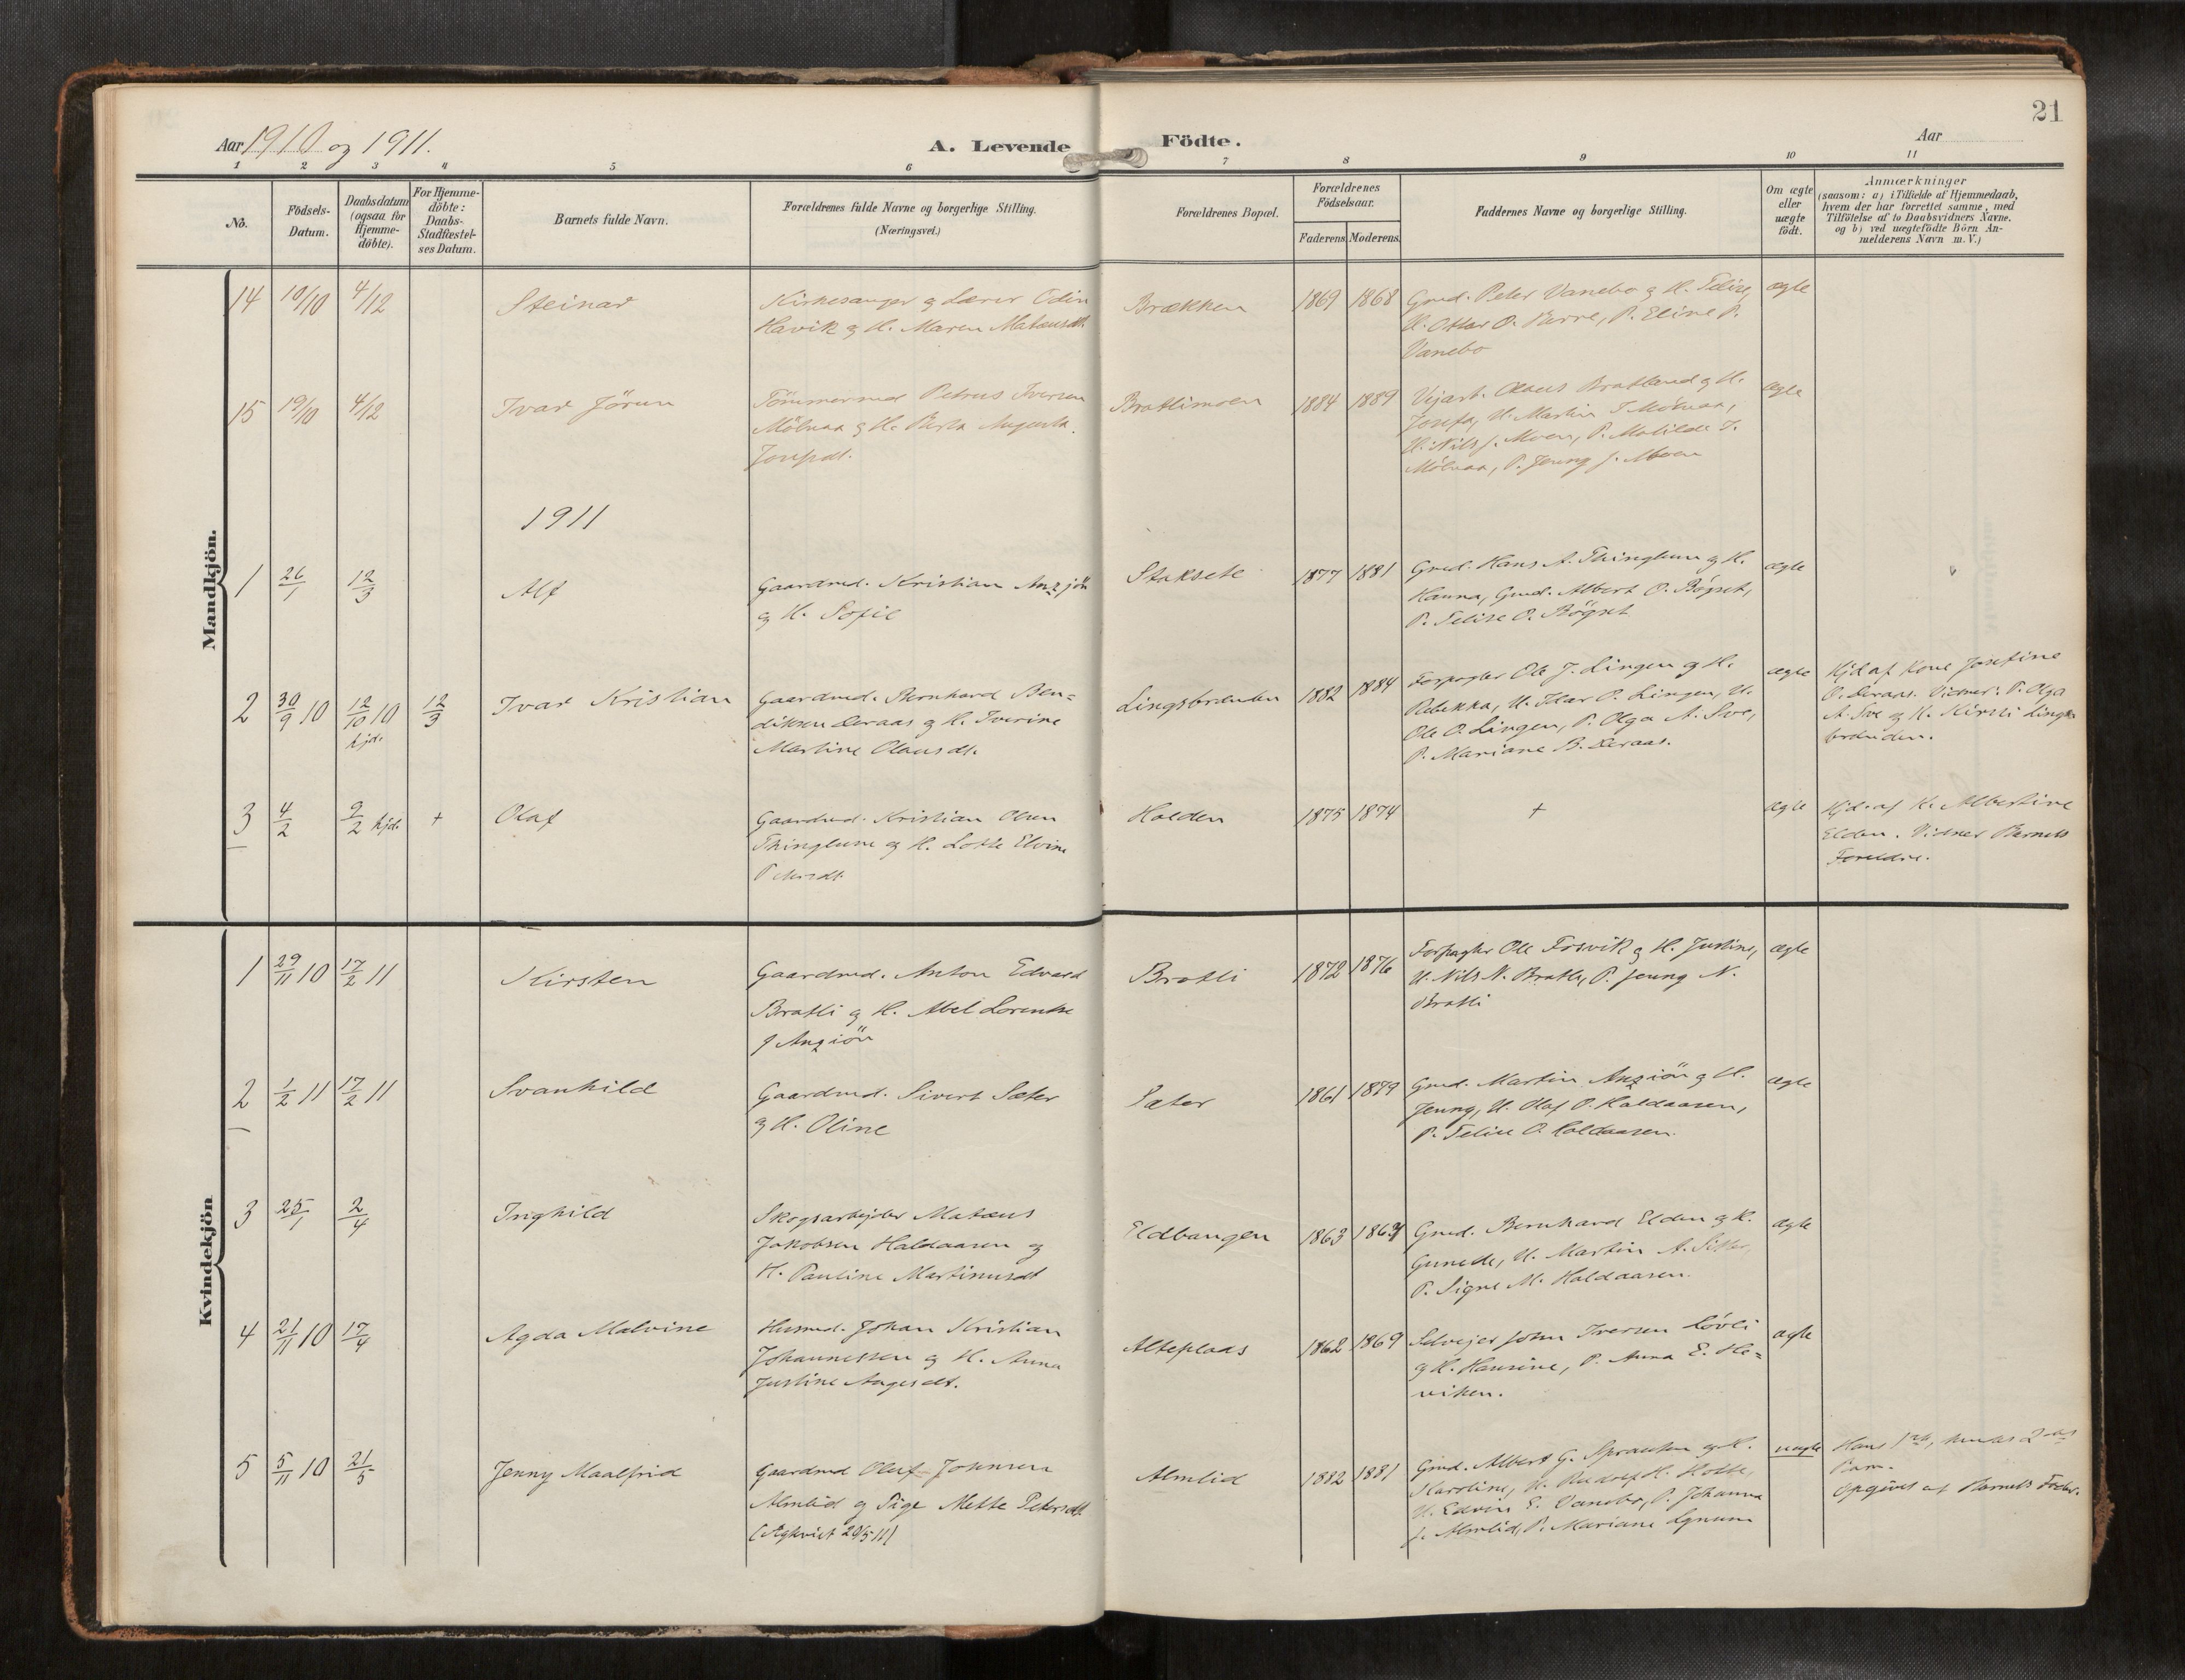 21
Aar 1910 og 1911.
A. Levende Födte.
Aar
1 2 3 4 5 6 7 8 9 10 11
No.
Födsels-
Datum.
Daabsdatum
(ogsaa for
Hjemme-
döbte).
For Hjemme-
döbte:
Daabs-
Stadfæstel-
ses Datum.
Barnets fulde Navn.
Forældrenes fulde Navne og borgerlige Stilling.
(Næringsvei.)
Forældrenes Bopæl.
Forældrenes
Födselsaar.
Faderens. Moderens.
Faddernes Navne og borgerlige Stilling.
Om ægte
eller
uægte
födt.
Anmærkninger
(saasom: a) i Tilfælde af Hjemmedaab,
hvem der har forrettet samme, med
Tilföielse af to Daabsvidners Navne.
og b) ved uægtefödte Börn An-
melderens Navn m. V.)
Mandkjön.
14 10/10 4/12 Steinar
Kirkesanger og Lærer Odin
Havik og H. Maren Mateusdt.
Brækken 1869 1868
Gmd. Peter Vanebo og H. Felise,
U. Ottar O. , P. Eline P.
Vanebo
ægte
15 19/10 4/12 Ivar Jörun
Tömmermd Petrus Iversen
Mölnaa og H. Augusta
Josefsdt.
Bratlimoen 1884 1889
Olaus Bratland og H.
Josefa, U. Martin I Mölnaa,
U. Nils J. Moen, P. Matilde I.
Mölnaa, P. Jenny J. Moen
ægte
1911
1 26/1 12/3 Alf
Gaardmd. Kristian Anzjön
og H. Sofie
Staksete 1877 1881
Gmd. Hans A. Thinglum og H.
Hanna, Gmd. Albert O. Bögset,
P. Felise O. Bögset
ægte
2 30/9 10 12/10 10 hjd. 12/3 Ivar Kristian
Gaardmd. Bernhard Ben=
diksen Deraas og H. Iverine
Martine Olausdt.
Lingsbrænden 1882 1884
Forpagter Ole J. Lingen og H.
Rebekka, U. Idar O. Lingen, U.
Ole O. Lingen, P. Olga A. Sve,
P. Mariane B. Deraas.
ægte
Hjd af Kone Josefine
O. Deraas. Vidner: P. Olga
A. Sve og K. Kirsti Lings
brænden.
3 4/2 9/2 hjd. + Olaf
Gaardmd. Kristian Olsen
Thinglum og H. Lotte Elvine
Petersdt.
Holden 1875 1874
+
ægte
Hjd. af K. Albertine
Elden. Vidner Barnets
Forældre.
Kvindekjön
1 29/11 10 17/2 11 Kirsten
Gaardmd. Anton Edvard
Bratli og H. Abel Lorentse
f Anziön
Bratli 1872 1876
Forpagter Ole Fosvik og H. Justine,
U. Nils N. Bratli, P. Jenny N.
Bratli
ægte
2 1/2 11 17/2 11 Svanhild
Gaardmd. Sivert Sæter
og H. Oline
Sæter 1861 1879
Gmd. Martin Anziön og H.
Jenny, U. Olaf O. Haldaasen,
P. Felise O. Haldaasen.
ægte
3 25/1 2/4 Inghild
Skogsarbejder Matæus
Jakobsen Haldaasen og
H. Pauline Martinusdt
Eldbangen 1863
Gmd. Bernhard Elden og K.
Gunede, U. Martin A. Sitter,
P. Signe M. Haldaasen.
ægte
4 21/11 10 17/4 Agda Malvine
Husmd. Johan Kristian
Johannessen og H. Anna
Justine Aagesdt.
Alteplads 1862 1869
Selvejer John Iversen Lövli
og H. Hansine, P. Anna E. He=
viken.
ægte
5 5/11 10 21/5 Jenny Maalfrid
Gaardmd Oluf Johnsen
Almlid og Pige Mette Petersdt.
(Ægteviet 20/5 11)
Almlid 1882 1881
Gmd. Albert G. og K.
Karoline, U. Rudolf H. Holte,
U. Edvin E. Vanebo, P. Johanna
J. Almlid, P. Mariane Lynum
uægte
Hans 1ste, hendes 2det
Barn.
Opgivet af Barnets Fader.